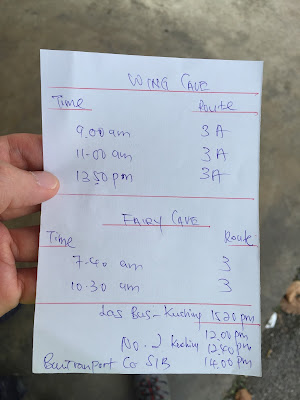 WING CAVE
Time Route
9.00 am 3A
11.00 am 3A
13.50 pm 3A
FAIRY CAVE
Time Route
7.40 am 3
10.30 am 3
Las Bus - Kuching 15.20 pm
12.00 pm
No. 2 Kuching 12.40 pm
14.00 pm
Co S/B